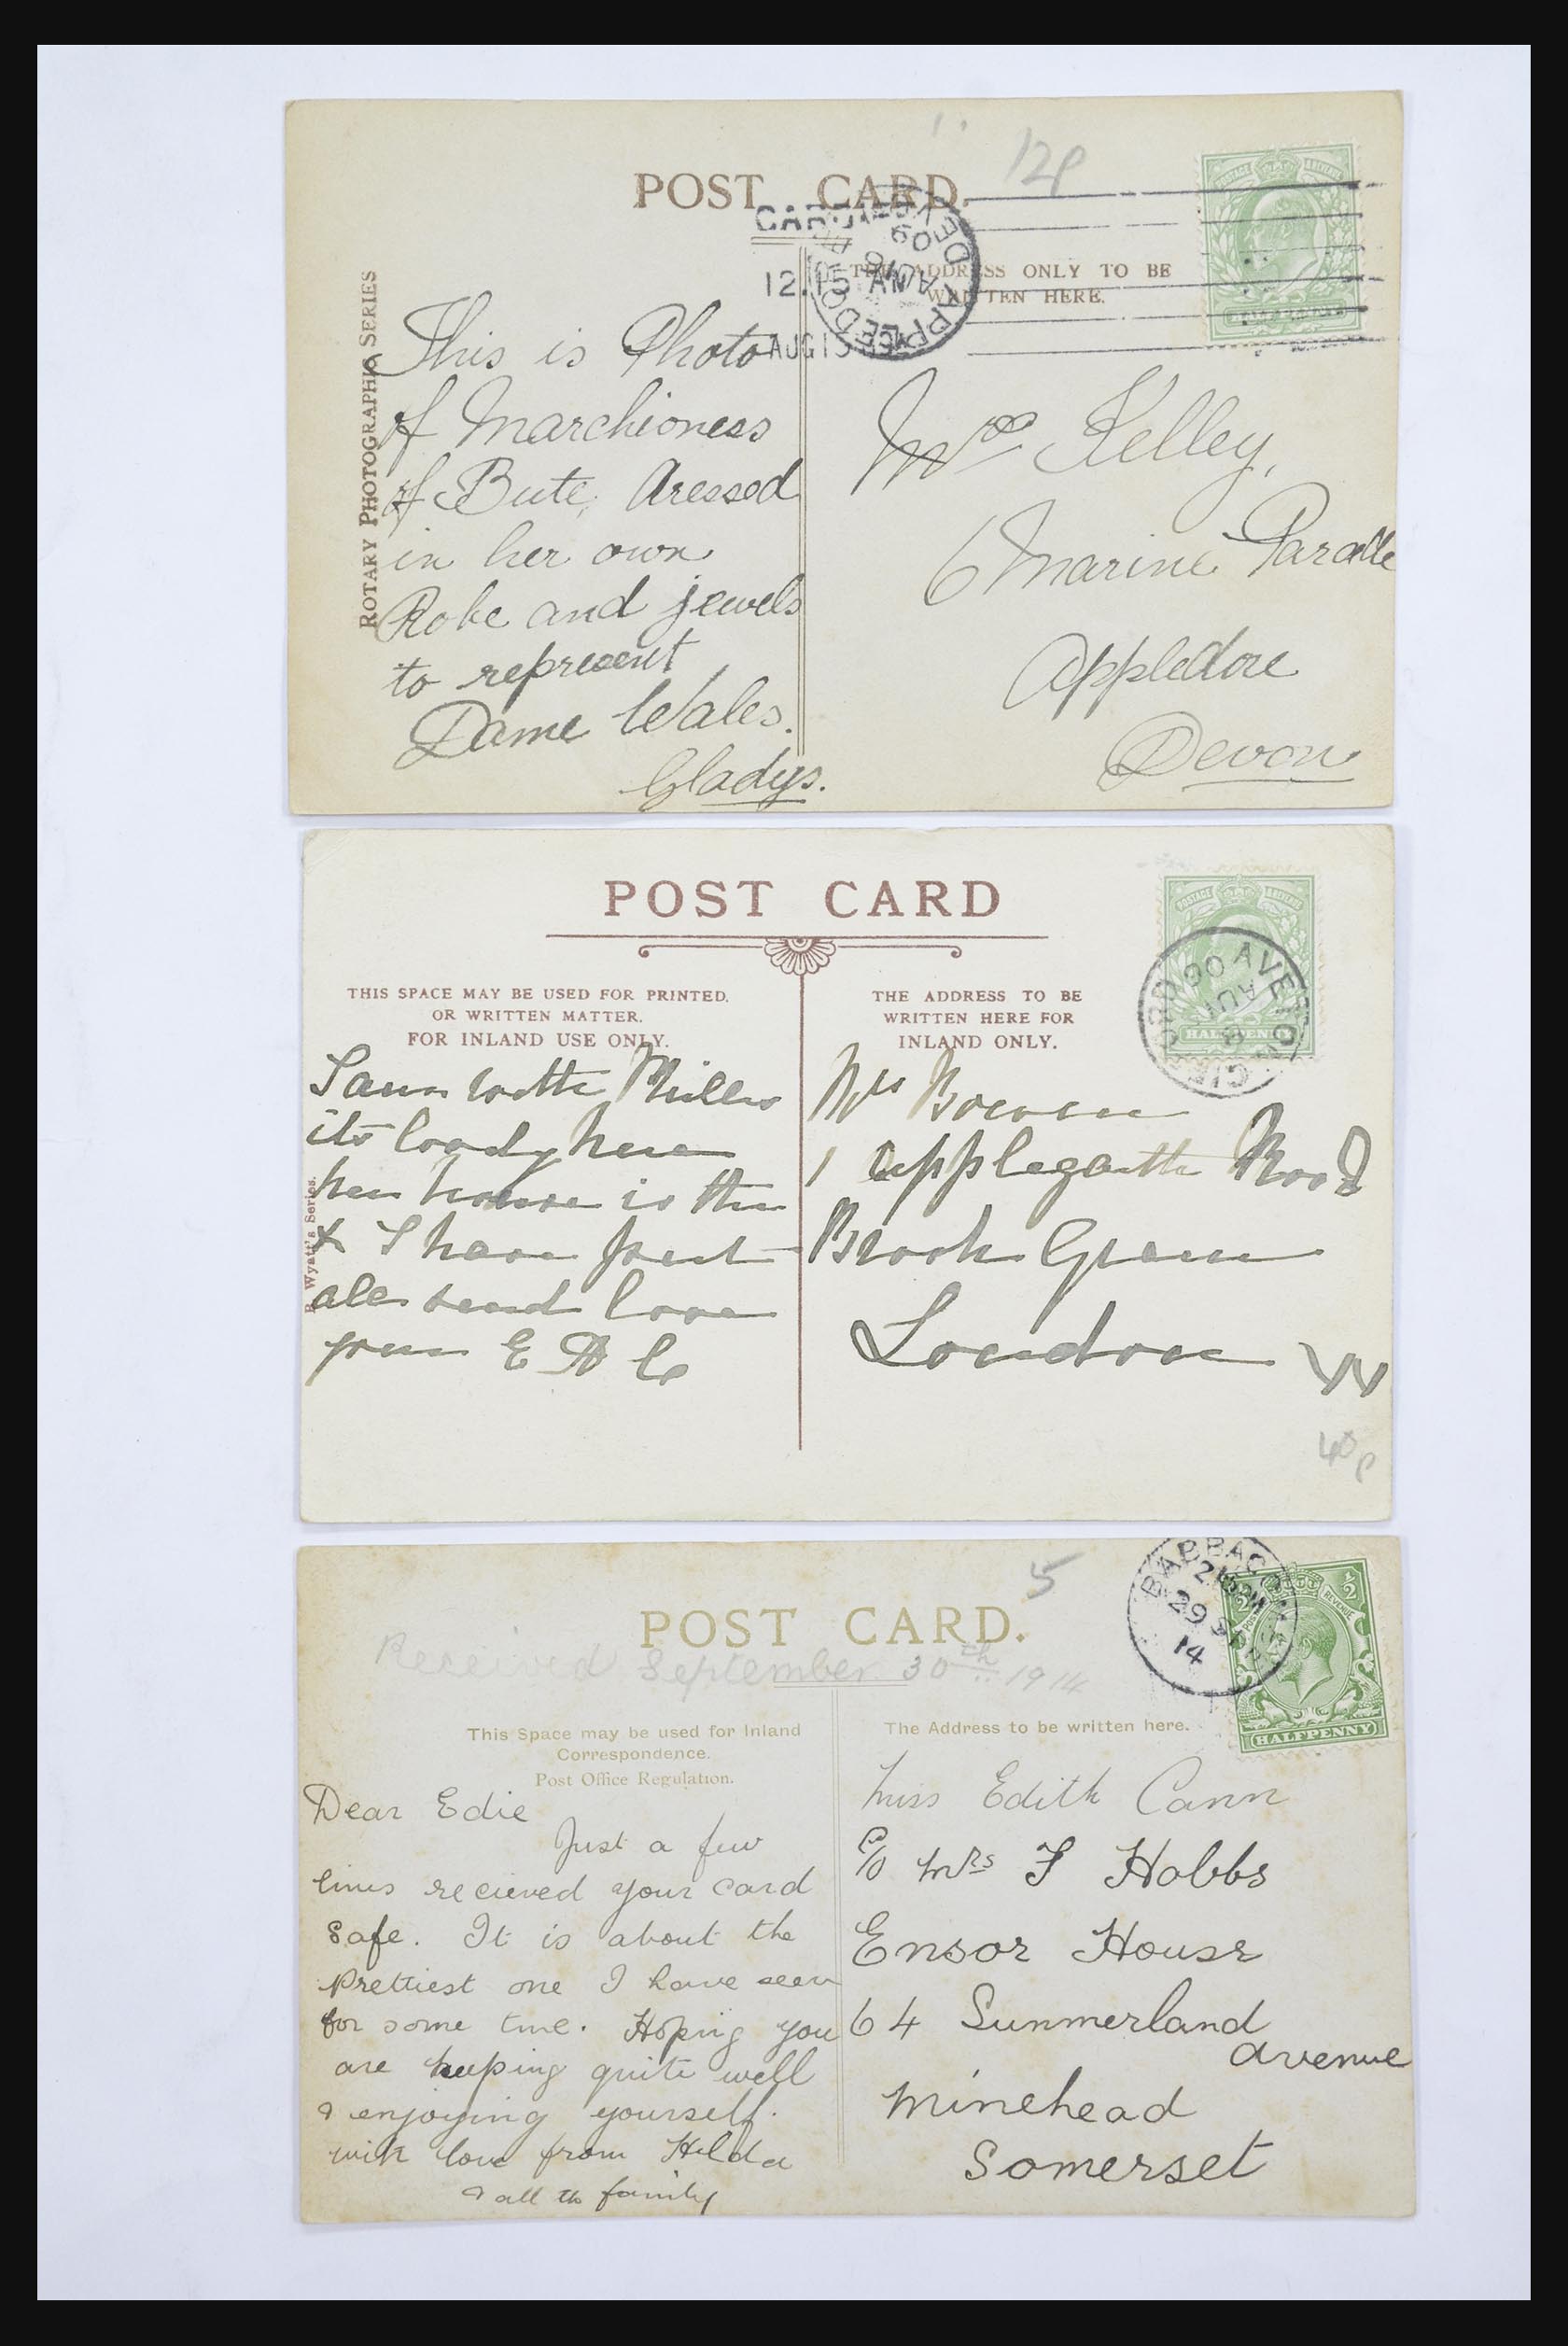 12p
POST CARD.
THE ADDRESS ONLY TO BE
WRITTEN HERE.
12.15 AM
AUG 13
APPLEDORE
ROTARY PHOTOGRAPHIC SERIES
This is Photo
of Marchioness
of Bute, dressed
in her own
Robe and jewels
to represent
Dame Wales.
Gladys.
Mrs Kelley,
6 Marine Parade
Appledore
Devon
POST CARD
THIS SPACE MAY BE USED FOR PRINTED.
OR WRITTEN MATTER.
FOR INLAND USE ONLY.
THE ADDRESS TO BE
WRITTEN HERE FOR
INLAND ONLY.
AVETON GIFFORD
AU
8
06
HALFPENNY
R. Wyatt's Series.
I am with Miller
its lovely here
her house is
& I have
all send love
from E A C
Mrs Bowen
1 applegarth Road
Brook Green
London W
40p
5
POST CARD.
Received September 30th 1914
This Space may be used for Inland
Correspondence.
Post Office Regulation.
The Address to be written here.
BABBACOMBE
29 SP
14
HALFPENNY
Dear Edie
Just a few
lines recieved your card
safe. It is about the
prettiest one I have seen
for some time. Hoping you
are keeping quite well
& enjoying yourself.
with love from Hilda
& all the family
Miss Edith Cann
c/o Mrs F Hobbs
Ensor House
64 Summerland
avenue
Minehead
Somerset